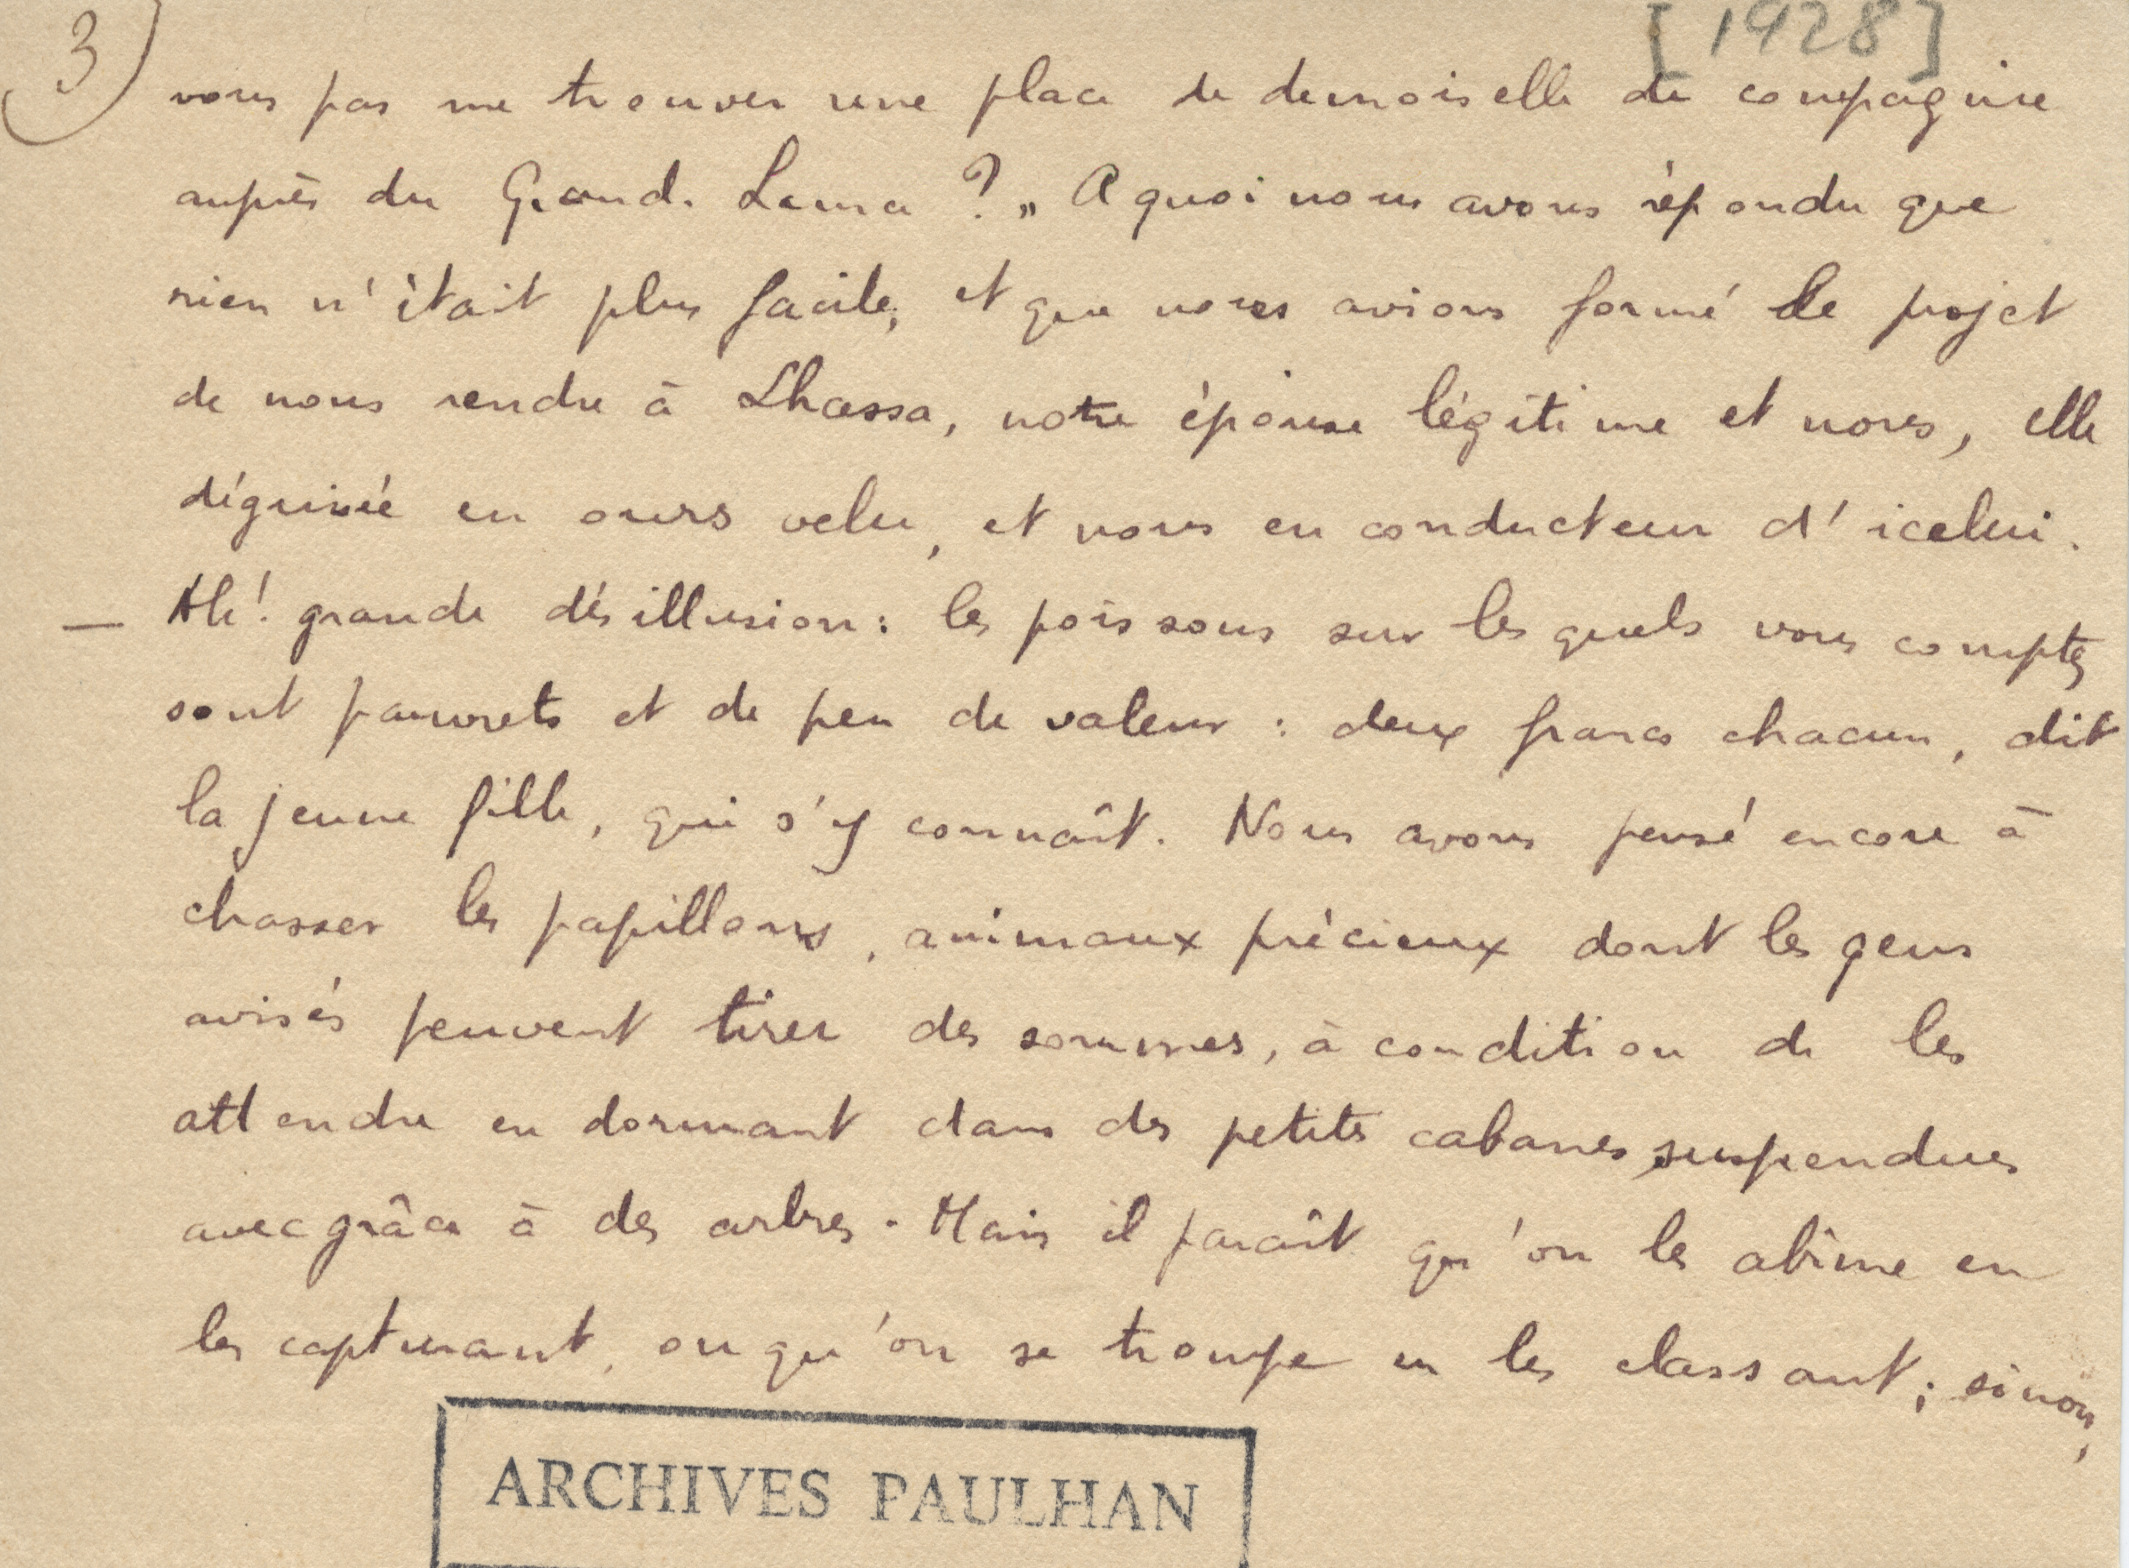 3)
[1928]
vous pas me trouver une place de demoiselle de compagnie
auprès du Grand. Lama ? „ A quoi nous avons répondu que
rien n'était plus facile, et que nous avions formé le projet
de nous rendre à Lhassa, notre épouse légitime et nous, elle
déguisée en ours velu, et nous en conducteur d'icelui.
— Ah! grande désillusion : les poissons sur lesquels vous comptez
sont pauvrets et de peu de valeur : deux francs chacun, dit
la jeune fille, qui s'y connaît. Nous avons pensé encore à
chasser les papillons, animaux précieux dont les gens
avisés peuvent tirer des sommes, à condition de les
attendre en dormant dans des petites cabanes suspendues
avec grâce à des arbres. Mais il paraît qu'on les abîme en
les capturant, ou qu'on se trompe en les classant ; sinon,
ARCHIVES PAULHAN